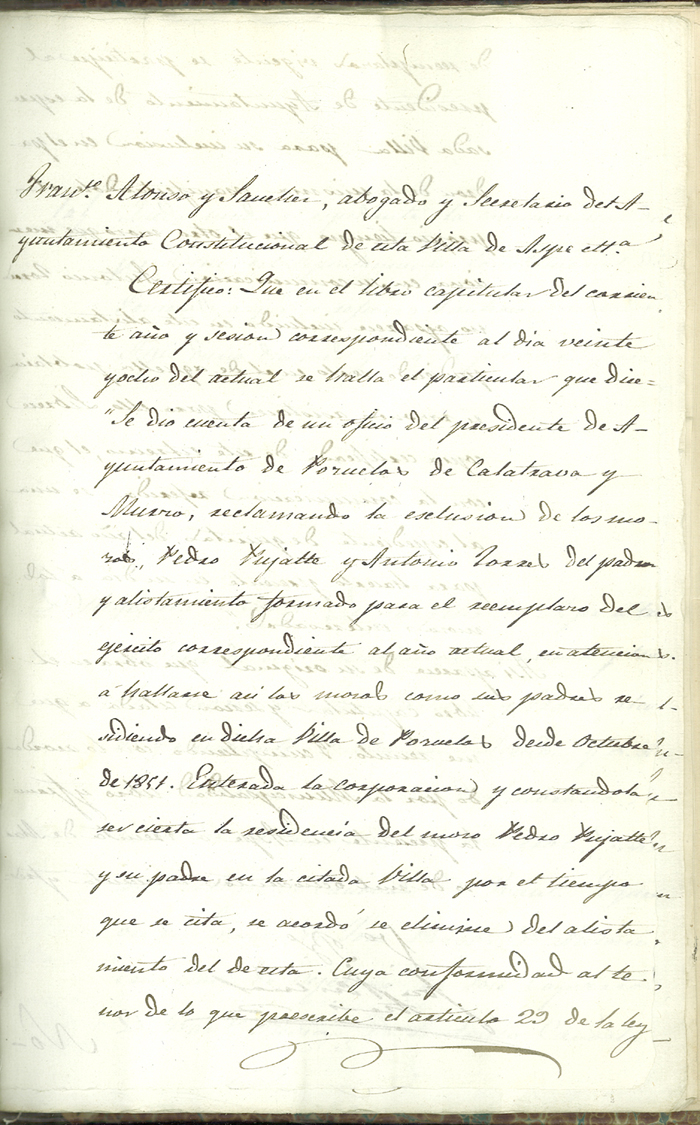 Fran.co Alonso y Sancher, abogado y Secretario del A-
yuntamiento Constitucional de esta Villa de Aspe etta.
Certifico: Que en el libro capitular del corrien
te año y sesion correspondiente al dia veinte
yocho del actual se halla el particular que dice=
"Se dio cuenta de un oficio del presidente de A-
yuntamiento de Pozuelos de Calatrava y
Murro, reclamando la esclusion de los mo-
zos, Pedro Pujalte y Antonio Torres del padron
y alistamiento formado para el reemplazo del
ejército correspondiente al año actual, en atencion
á hallarse asi los mozos como sus padres re-
sidiendo en dicha Villa de Pozuelos desde Octubre
de 1851. Enterada la corporacion y constandola
ser cierta la residencia del mozo Pedro Pujalte
y su padre en la citada Villa por el tiempo
que se cita, se acordó se elimine del alista
miento del de esta. Cuya conformidad al te
nor de lo que prescribe el articulo 29 de la ley